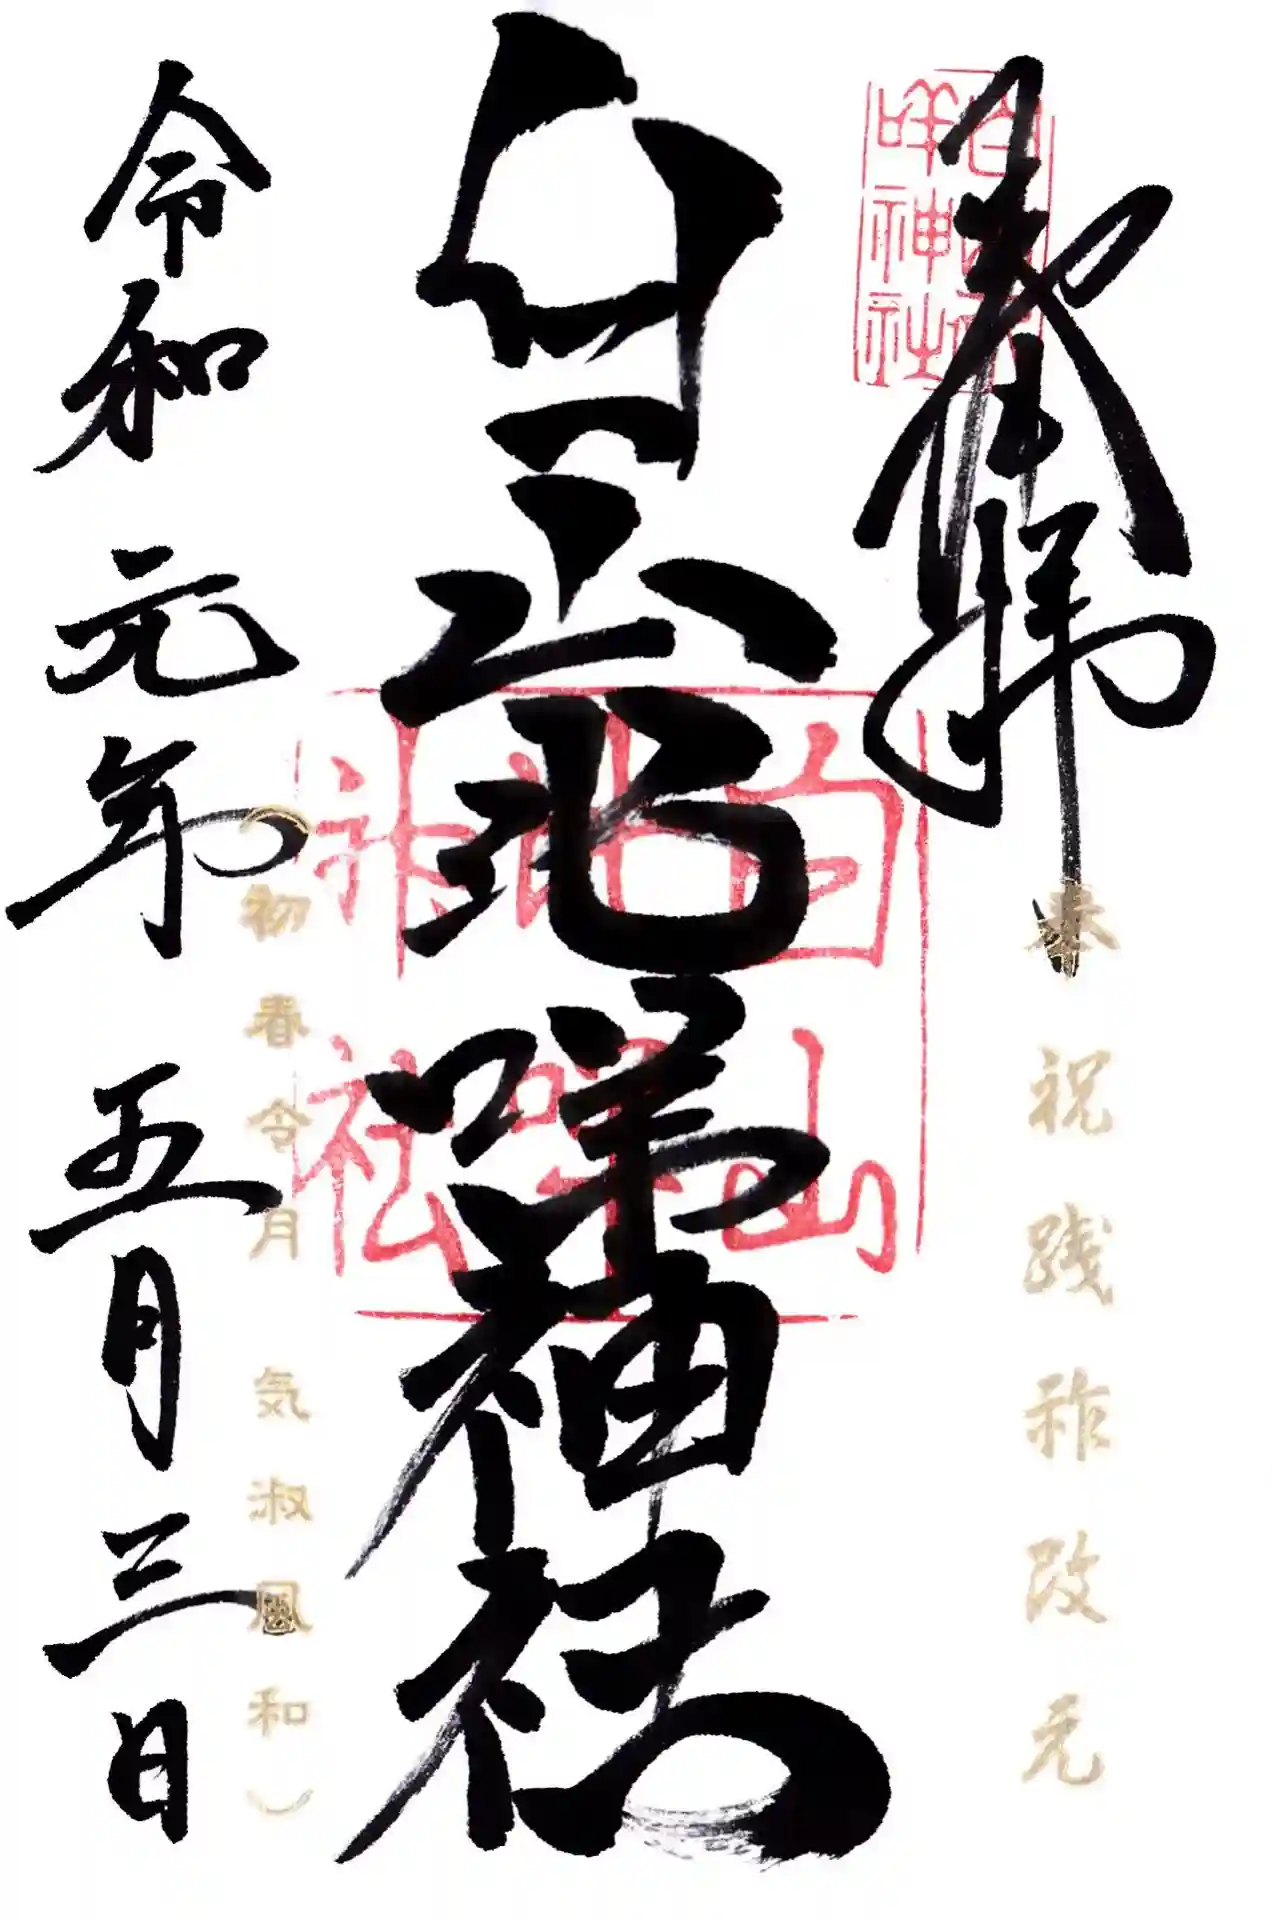 奉拝
奉祝践祚改元
白山比
咩神社
白山比咩神社
白山
比咩
神社
（初春令月 気淑風和）
令和元年五月三日